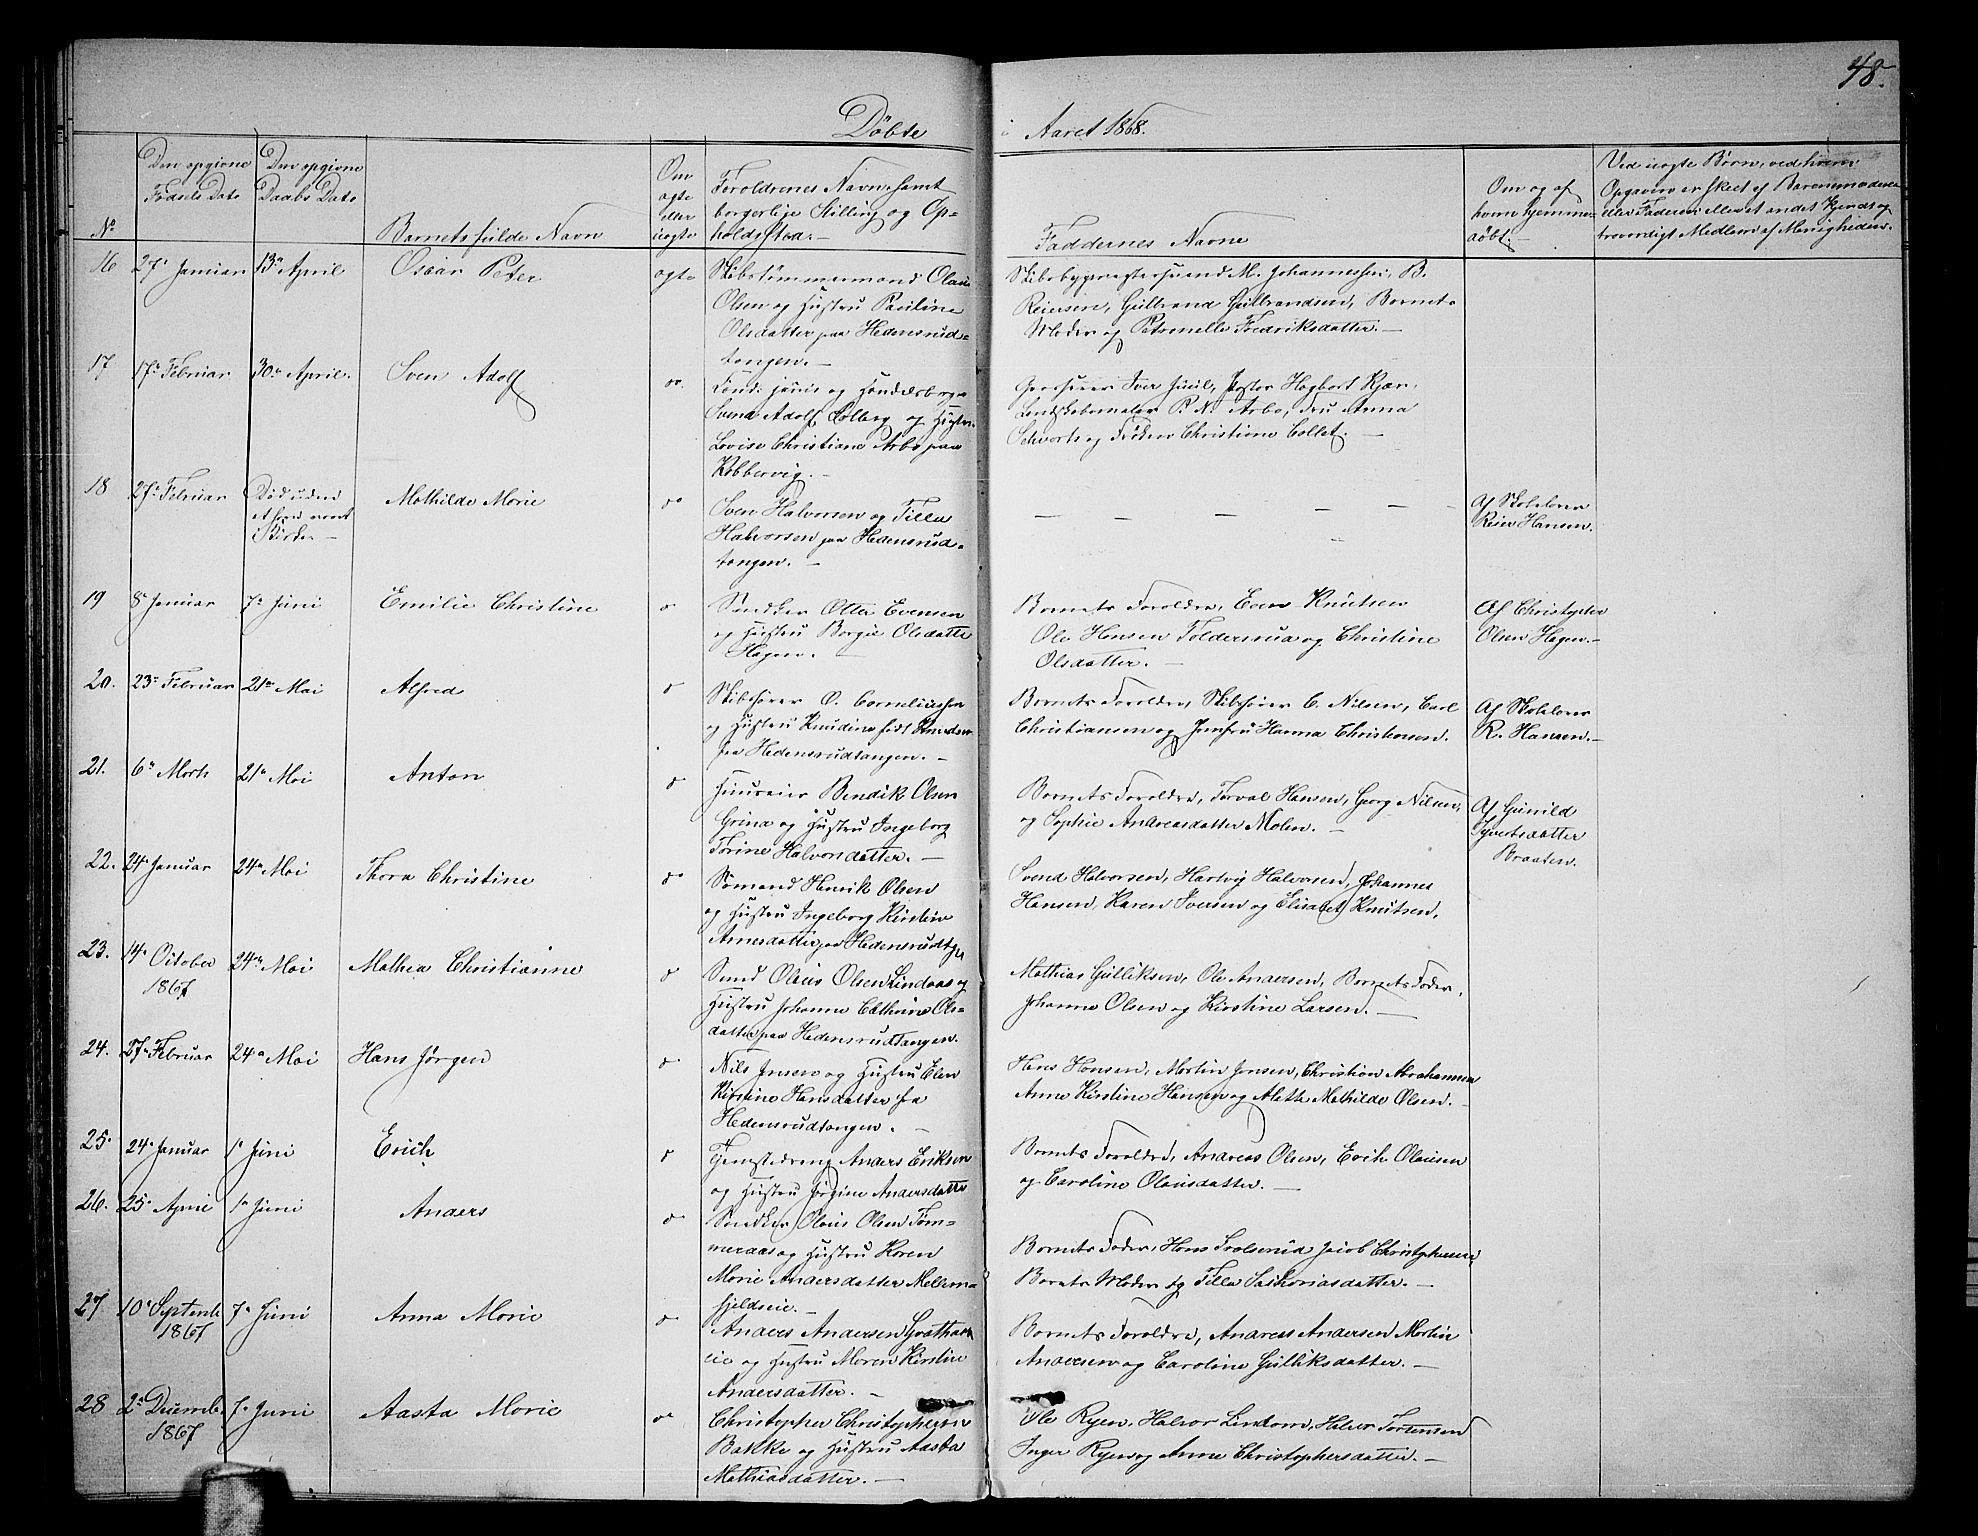 48.
Døbte
i Aaret 1868.
No
Den opgivne
Fødsels Dato
Den opgivne
Daabs Dato
Barnets fulde Navn
Om
ægte
eller
uægte
Foreldrenes Navn samt
borgerlige Stilling og Op-
holdssted.
Faddernes Navne
Om og af
hvem hjemme-
døbt.
Ved uægte Børn, ved hvem
Opgaven er skeet af Barnemoderen
eller Faderen eller et andet kjendt og
troverdigt Medlem af Menigheden.
16 27de Januar 13de April Oscar Peter ægte
Skibstømmermand Olaus
Olsen og Hustru Pauline
Olsdatter paa Hedensrud-
tangen. —
Skibsbyggersvend M. Johannessen, B.
Reiersen, Gulbrand Gulbrandsen, Barnets
Moder og Petronelle Fredriksdatter. —
17 17de Februar 30te April. Sven Adolf do.
Svend Adolf Solberg og Hustru
Lovise Christiane Arbo paa
Kobbervig. —
Grosserer Iver Juul, Pastor Hagbart Kjær,
Landskabsmaler P. N. Arbo, Fru Anna
Schwartz og Frøken Christiane Collet. —
18 27de Februar Død uden
at have været
i Kirken — Mathilde Marie do
Sven Halvorsen og Tilla
Halvorsen paa Hedensrud-
tangen. —
— — — — — —
Af Skolelærer
Reier Hansen.
19 8de Januar 7de Juni Emilie Christine do
Snedker Otto Evensen
og Hustru Borgil Olsdatter
Hagen. —
Barnets Foreldre, Even Knutsen
Ole Hansen Foldersrud og Christine
Olsdatter. —
Af Christopher
Olsen Hagen. —
20. 23de Februar 21de Mai Alfred do
Skibsfører O. Corneliussen
og Hustru Knudine født Knudsen
fra Hedensrudtangen. —
Barnets Foreldre, Skibsfører C. Nilsen, Carl
Christiansen og Jomfru Hanna Christensen.
Af Skolelærer
R. Hansen. —
21. 6te Marts 21de Mai Anton do
Huuseier Bendik Olsen
Grina og Hustru Ingeborg
Torine Halvorsdatter. —
Barnets Foreldre, Torval Hansen, Georg Nilsen,
og Sophie Andreasdatter Molen. —
Af Gunild
Syvertsdatter
Braaten.
22. 24de Januar 24de Mai Thora Christine do
Sømand Henrik Olsen
og Hustru Ingeborg Kirstine
Arnesdatter paa Hedensrudtgn
Svend Halvorsen, Hartvig Halvorsen, Johannes
Hansen, Karen Iversen og Elisabet Knutsen.
23. 14de October
1867 24de Mai Mathea Christianne do
Smed Olaus Olsen Lindaas og
Hustru Johanne Cathrine Ols-
datter paa Hedensrudtangen.
Mathias Gulliksen, Ole Andersen, Barnets Fader,
Johanne Olsen og Kirstine Larsen. —
24. 27de Februar 24de Mai Hans Jørgen do
Nils Jensen og Hustru Elen
Kirstine Hansdatter fra
Hedensrudtangen. —
Hans Hansen, Martin Jensen, Christian Abrahamsen
Anne Kirstine Hansen og Alette Mathilde Olsen. —
25. 24de Januar 1ste Juni Erich do
Tjenestedreng Anders Eriksen
og Hustru Jørgine Andersdatter
Barnets Foreldre, Andreas Olsen, Erik Olausen
og Caroline Olausdatter. —
26. 25de April 1ste Juni Anders do
Snedker Olaus Olsen Tøm-
meraas og Hustru Karen
Marie Andersdatter Mellem-
fjeldseie. —
Barnets Fader, Hans Trolserud, Jacob Christophersen,
Barnets Moder og Tilla Sakariasdatter. —
27. 10de Septemb.
1867 7de Juni Anna Marie do
Anders Andersen
eie og Hustru Maren Kirstine
Andersdatter. —
Barnets Foreldre, Andreas Andersen, Martin
Andersen og Caroline Gulliksdatter. —
28 2den Decemb.
1867 7de Juni Aasta Marie do
Christopher Christophersen
Bakke og Hustru Aasta
Mathiasdatter. —
Ole Ryen, Halvor Lindom, Halvor Torstensen
Inger Ryen og Anne Christophersdatter. —